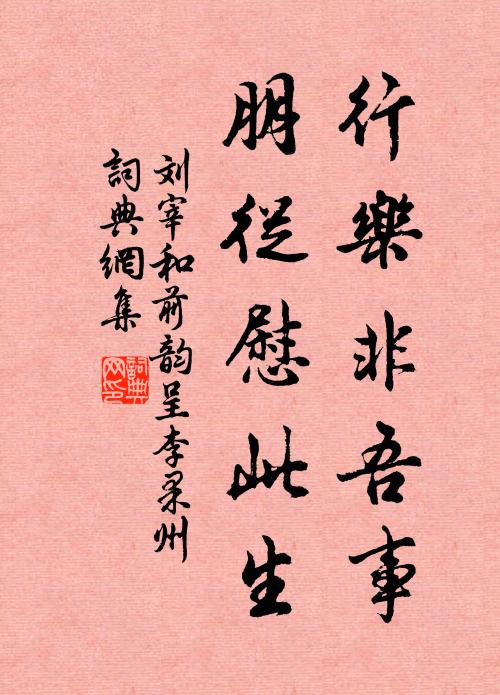 行樂非吾事
朋從慰此生
刘宰和前韵呈李果州
詞典網集
詞典网印